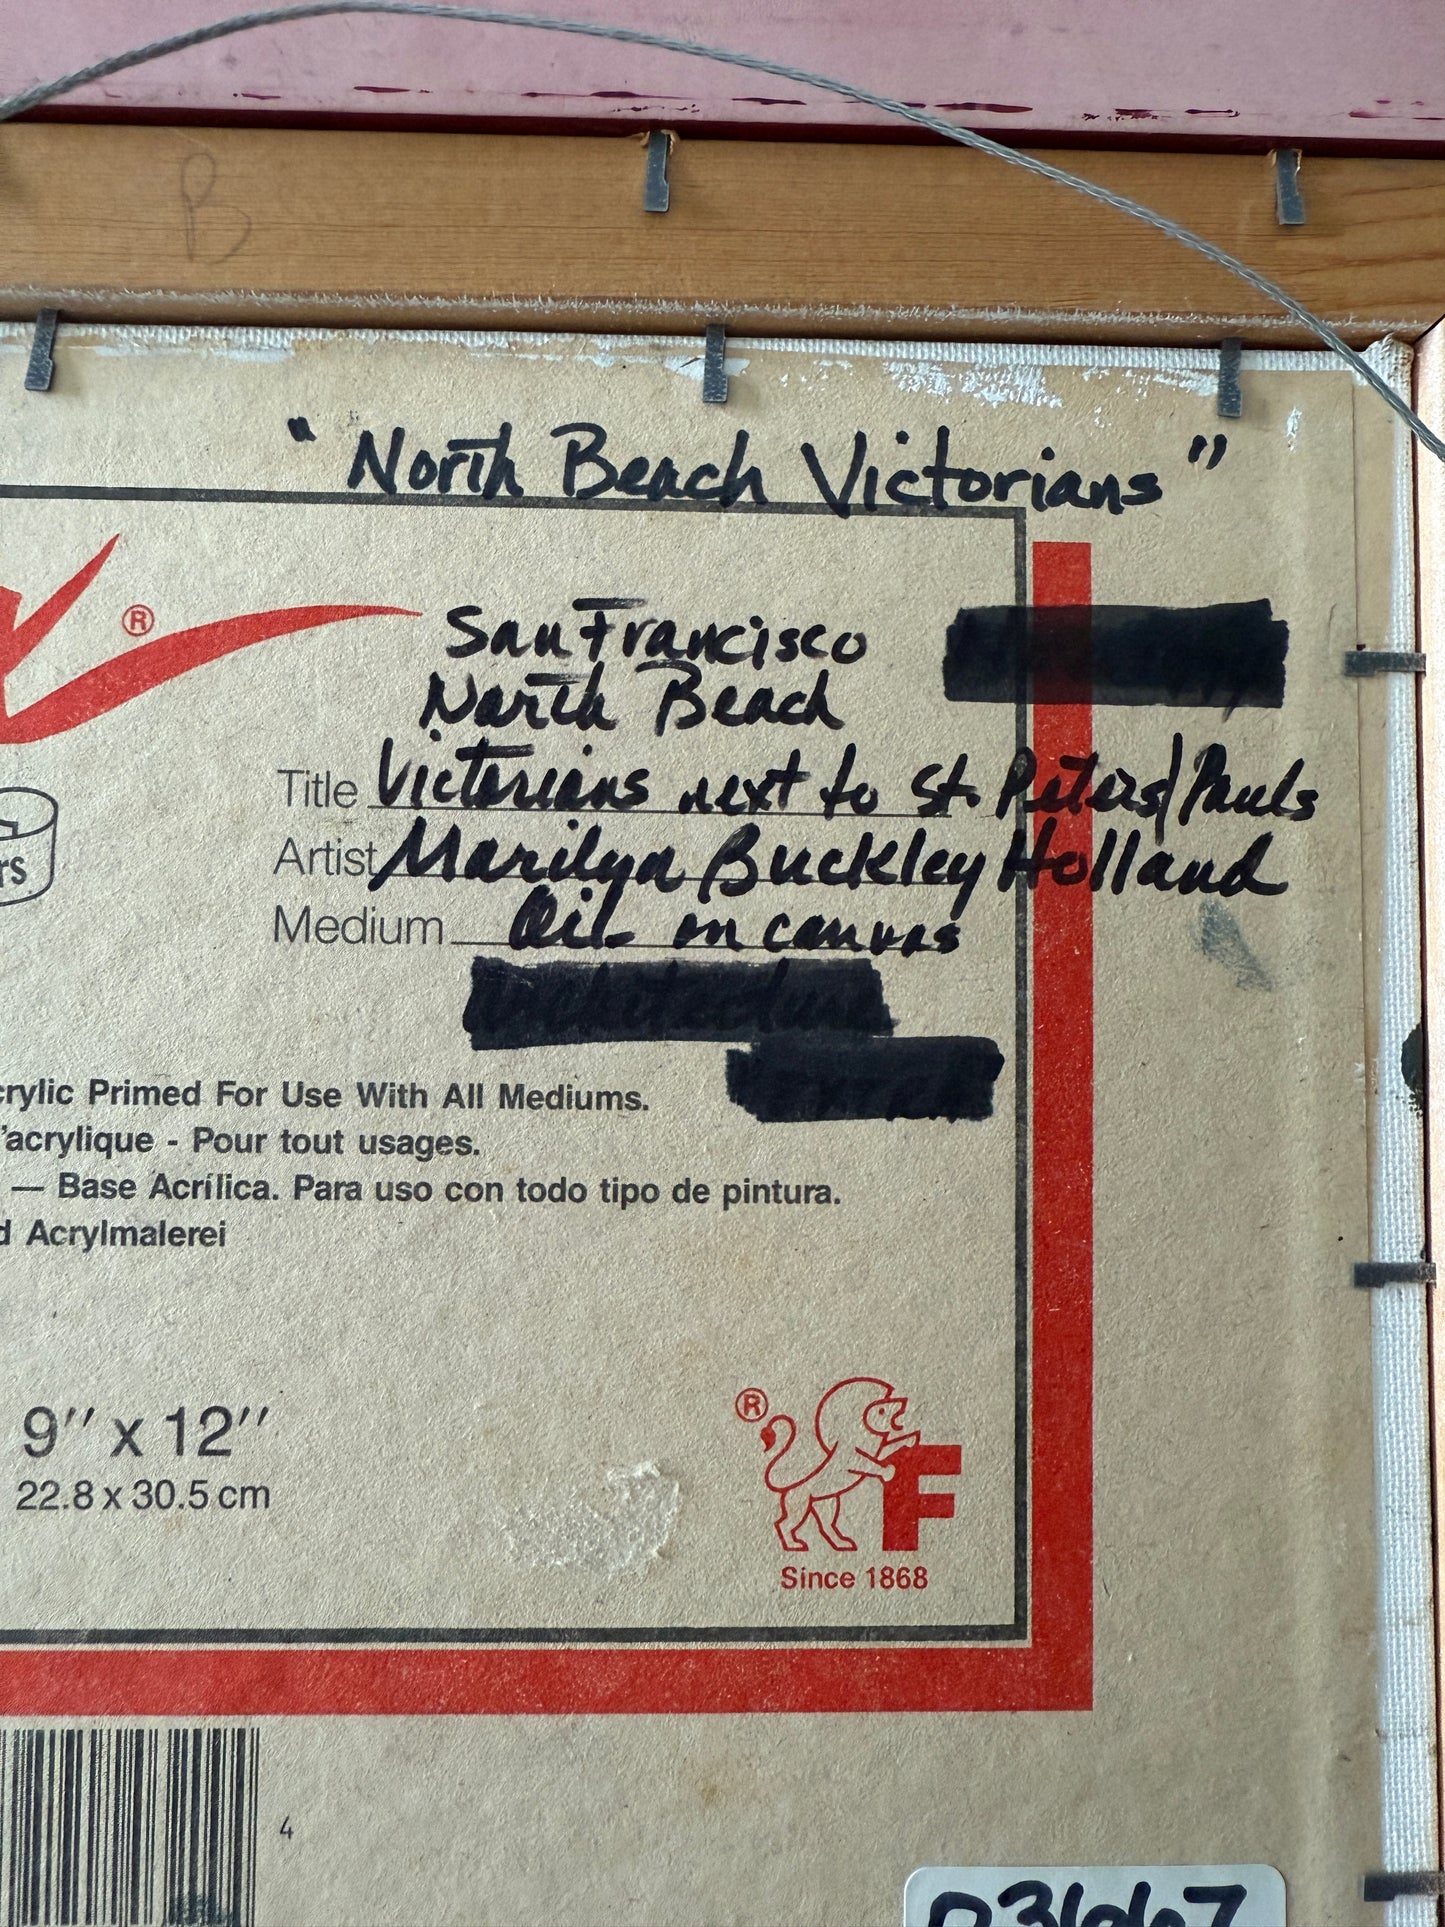 B
"North Beach Victorians"
®
San Francisco
North Beach
Title Victorians next to St. Peters/Pauls
Artist Marilyn Buckley Holland
rs
Medium Oil on canvas
crylic Primed For Use With All Mediums.
'acrylique - Pour tout usages.
— Base Acrílica. Para uso con todo tipo de pintura.
d Acrylmalerei
9" x 12"
22.8 x 30.5 cm
® F
Since 1868
4